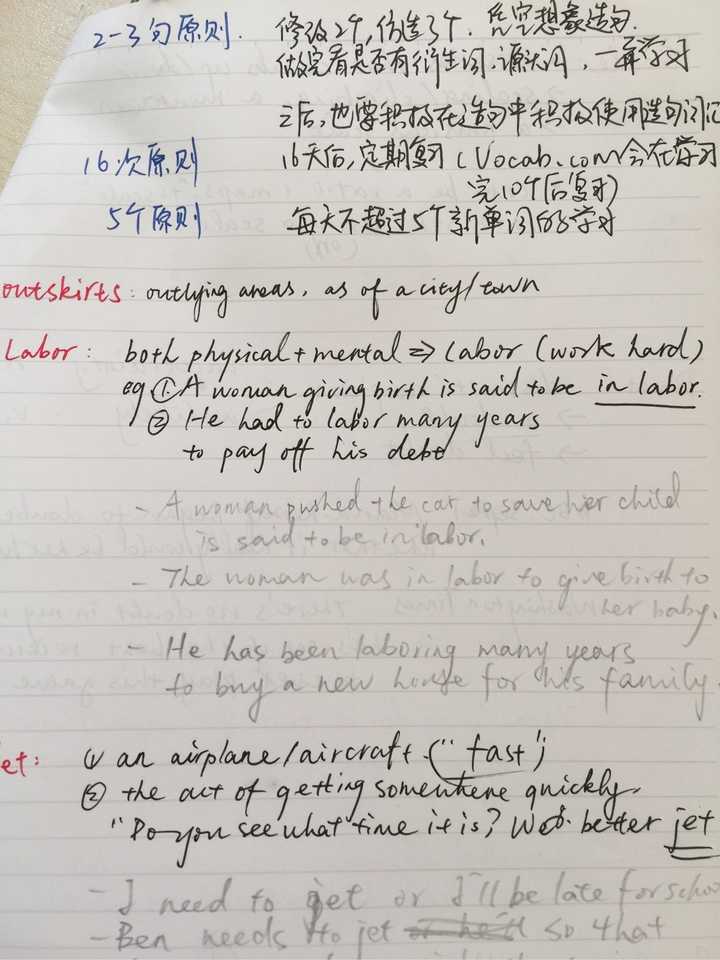 2-3句原则. 修改2个,仿造3个. 凭空想象造句.
做完看是否有衍生词,源头词,一并学习
之后,也要积极在造句中积极使用造句词汇
16次原则 16天后,定期复习(Vocab.com会在学习
完10个后复习)
5个原则 每天不超过5个新单词的学习
outskirts: outlying areas, as of a city/town
Labor: both physical + mental => labor (work hard)
eg ① A woman giving birth is said to be in labor.
② He had to labor many years
to pay off his debt
- A woman pushed the car to save her child
is said to be in labor.
- The woman was in labor to give birth to
her baby.
- He has been laboring many years
to buy a new house for his family.
et: ① an airplane/aircraft. ("fast")
② the act of getting somewhere quickly.
"Do you see what time it is? We'd better jet
- I need to jet or I'll be late for schoo
- Ben needs to jet so that